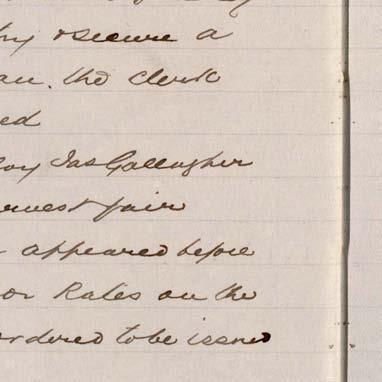 try & secure a
the Clerk
ed
Jas Gallagher
fair
appeared before
or Rates on the
ordered to be issued